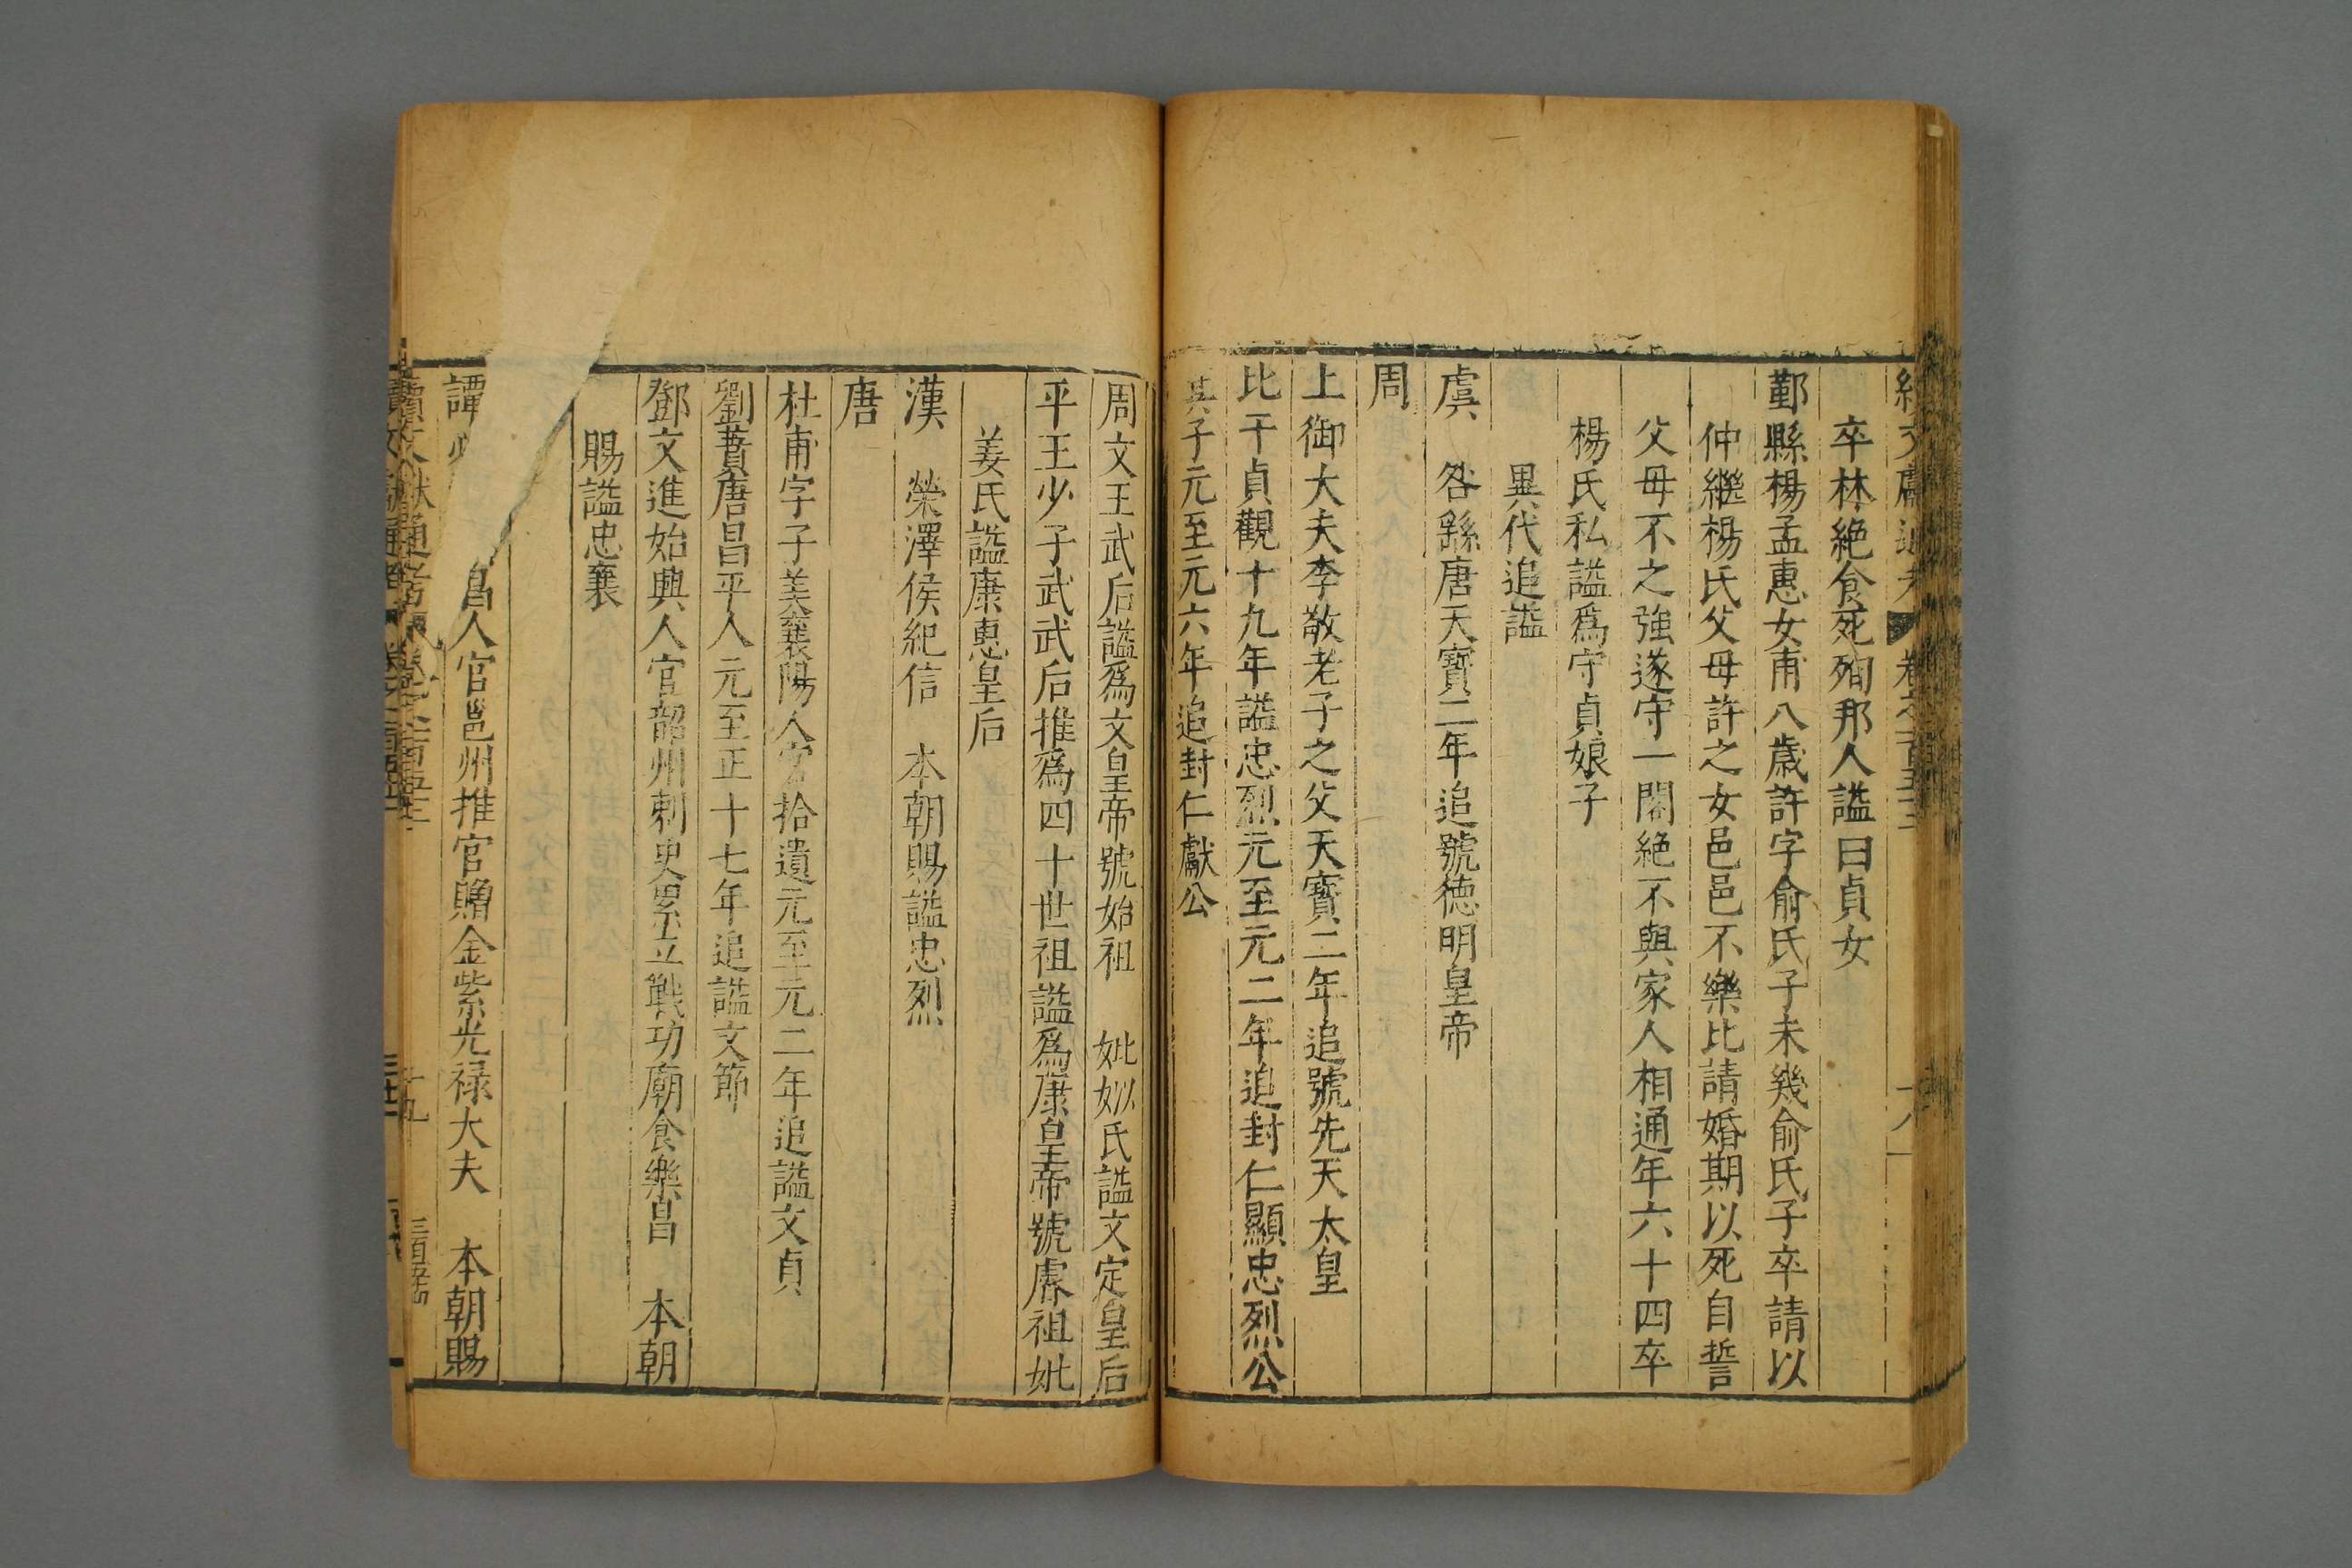 續文獻通考 卷之一百五十三 十八
卒林絶食死殉那人諡曰貞女
鄞縣楊孟惠女甫八歲許字俞氏子未幾俞氏子卒請以
仲繼楊氏父母許之女邑邑不樂比請婚期以死自誓
父母不之強遂守一閣絶不與家人相通年六十四卒
楊氏私諡爲守貞娘子
異代追諡
虞 咎繇唐天寶二年追號徳明皇帝
周
上御大夫李敬老子之父天寶二年追號先天太皇
比干貞觀十九年諡忠烈元至元二年追封仁顯忠烈公
箕子元至元六年追封仁獻公
周文王武后諡爲文皇帝號始祖 妣姒氏諡文定皇后
平王少子武武后推爲四十世祖諡爲康皇帝號睿祖妣
姜氏諡康惠皇后
漢 榮澤侯紀信 本朝賜諡忠烈
唐
杜甫字子美襄陽人官拾遺元至元二年追諡文貞
劉蕡唐昌平人元至正十七年追諡文節
鄧文進始興人官韶州刺史累立戰功廟食樂昌 本朝
賜諡忠襄
譚 昌人官邕州推官贈金紫光禄大夫 本朝賜
續文獻通考 十九